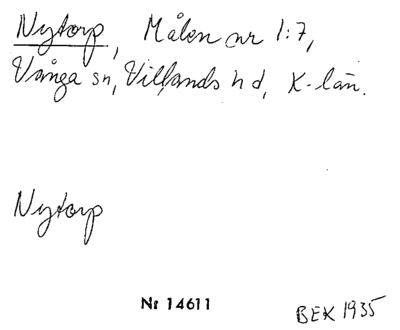 Nytorp, Målen nr 1:7,
Vånga sn, Villands hd, K-län.
Nytorp
Nr 14611
BEK 1935